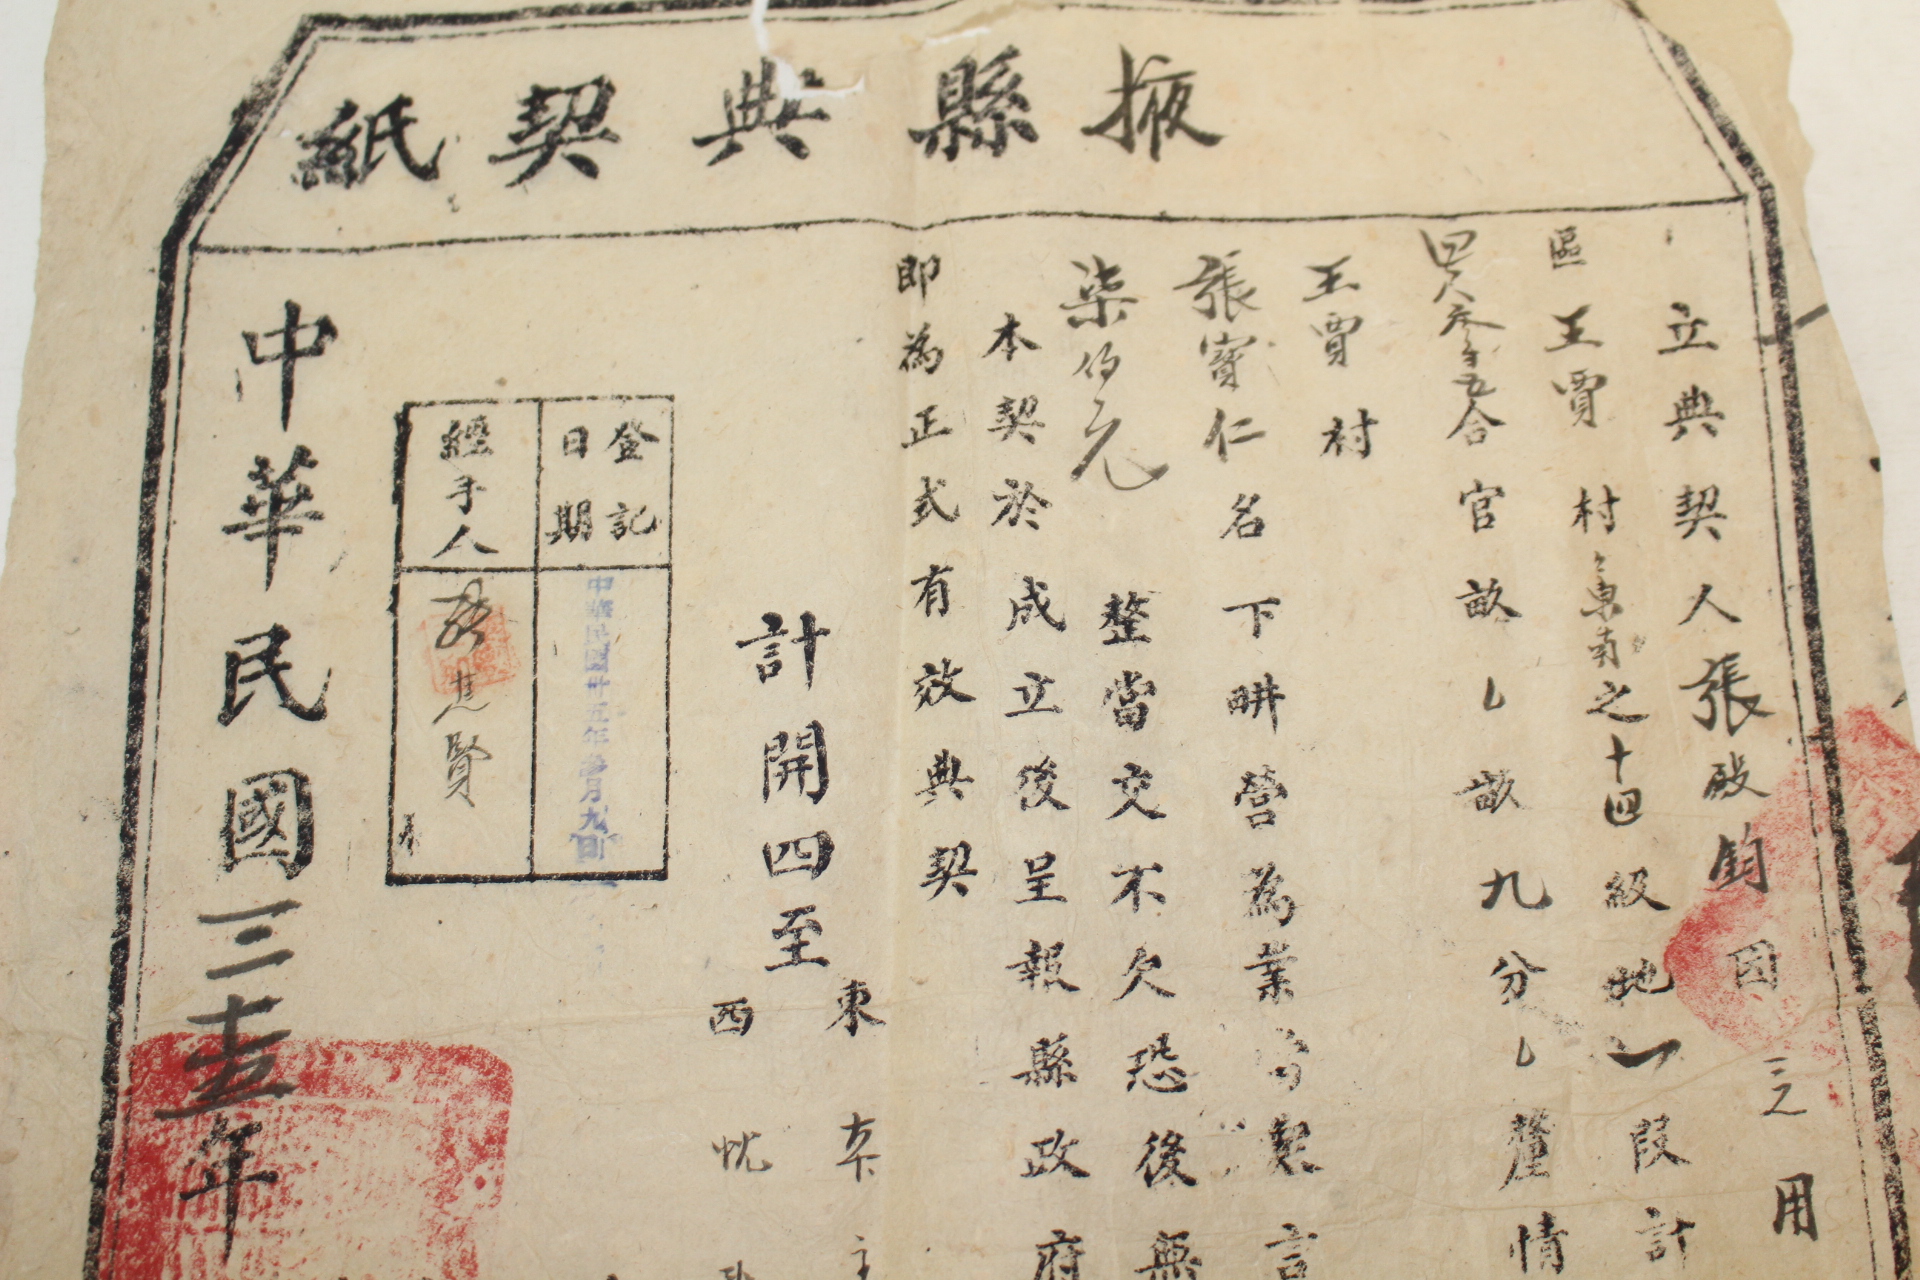 掖縣典契紙
立典契人張殿鈞因乏用
區王賈村東南之十四級地一段計
合官畝畝九分釐情
王賈村
張寶仁名下畊營為業寫契言
柒伯元整當交不欠恐後無
本契於成立後呈報縣政府
即為正式有效典契
計開四至
東
西
登記日期
中華民國卅五年月九日
經手人
賢
中華民國三十五年